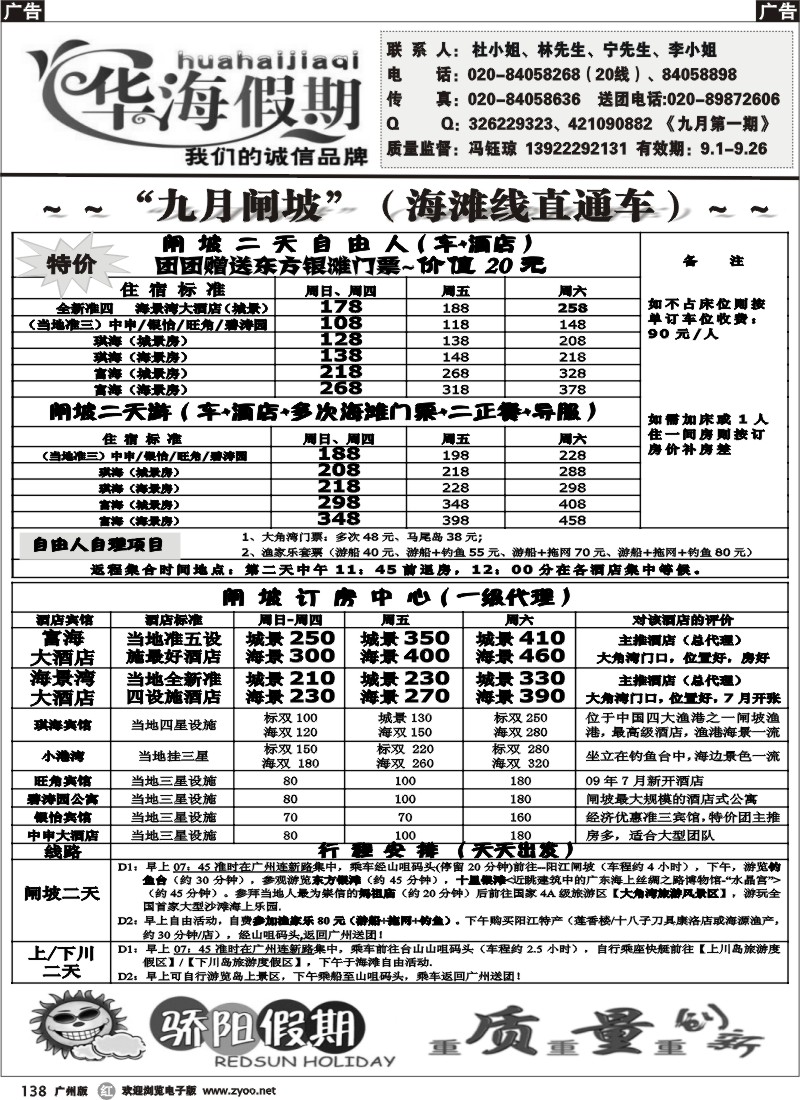 广告 广告
huahaijiaqi
华海假期
我们的诚信品牌
联 系 人： 杜小姐、林先生、宁先生、李小姐
电 话：020-84058268（20线）、84058898
传 真：020-84058636 送团电话:020-89872606
Q Q：326229323、421090882 《九月第一期》
质量监督：冯钰琼 13922292131 有效期：9.1-9.26
~ ~ “九月闸坡”（海滩线直通车）~ ~
特价
闸坡二天自由人（车+酒店）
团团赠送东方银滩门票~价值 20 元
备 注
住宿标准 周日、周四 周五 周六
全新准四 海景湾大酒店（城景） 178 188 258
（当地准三）中申/银怡/旺角/碧涛园 108 118 148
琪海（城景房） 128 138 208
琪海（海景房） 138 148 218
富海（城景房） 218 268 328
富海（海景房） 268 318 378
如不占床位则按
单订车位收费：
90 元/人
闸坡二天游（车+酒店+多次海滩门票+二正餐+导服）
住宿标准 周日、周四 周五 周六
（当地准三）中申/银怡/旺角/碧涛园 188 198 228
琪海（城景房） 208 218 288
琪海（海景房） 218 228 298
富海（城景房） 298 348 408
富海（海景房） 348 398 458
如需加床或 1 人
住一间房则按订
房价补房差
自由人自理项目
1、大角湾门票：多次 48 元、马尾岛 38 元；
2、渔家乐套票（游船 40 元、游船+钓鱼 55 元、游船+拖网 70 元、游船+拖网+钓鱼 80 元）
返程集合时间地点：第二天中午 11：45 前退房，12：00 分在各酒店集中等候。
闸坡订房中心（一级代理）
酒店宾馆 酒店标准 周日-周四 周五 周六 对该酒店的评价
富海 当地准五设 城景 250 城景 350 城景 410 主推酒店（总代理）
大酒店 施最好酒店 海景 300 海景 400 海景 460 大角湾门口，位置好，房好
海景湾 当地全新准 城景 210 城景 230 城景 330 主推酒店（总代理）
大酒店 四设施酒店 海景 230 海景 270 海景 390 大角湾门口，位置好，7 月开张
琪海宾馆 当地四星设施 标双 100 城景 130 标双 250 位于中国四大渔港之一闸坡渔
海双 120 海双 150 海双 280 港，最高级酒店，渔港海景一流
小港湾 当地挂三星 标双 150 标双 220 标双 280 坐立在钓鱼台中，海边景色一流
海双 180 海双 260 海双 320
旺角宾馆 当地三星设施 80 100 180 09 年 7 月新开酒店
碧涛园公寓 当地三星设施 80 100 180 闸坡最大规模的酒店式公寓
银怡宾馆 当地三星设施 70 70 160 经济优惠准三宾馆，特价团主推
中申大酒店 当地三星设施 80 100 180 房多，适合大型团队
线路 行程安排（天天出发）
闸坡二天
D1：早上 07：45 准时在广州连新路集中，乘车经山咀码头(停留 20 分钟)前往--阳江闸坡（车程约 4 小时），下午，游览钓
鱼台（约 30 分钟），参观游览东方银滩（约 45 分钟），十里银滩<近眺建筑中的广东海上丝绸之路博物馆-“水晶宫”>
（约 45 分钟）。参拜当地人最为崇信的妈祖庙（约 20 分钟）后前往国家 4A 级旅游区【大角湾旅游风景区】，游玩全
国首家大型沙滩海上乐园.
D2：早上自由活动，自费参加渔家乐 80 元（游船+拖网+钓鱼）。下午购买阳江特产（莲香楼/十八子刀具康洛店或海源渔产，
约 30 分钟/店），经山咀码头,返回广州送团！
上/下川
二天
D1：早上 07：45 准时在广州连新路集中，乘车前往台山山咀码头（车程约 2.5 小时），自行乘座快艇前往【上川岛旅游度
假区】/【下川岛旅游度假区】，下午于海滩自由活动.
D2：早上可自行游览岛上景区，下午乘船至山咀码头，乘车返回广州送团！
骄阳假期
REDSUN HOLIDAY
重质重量重创新
138 广州版 红 欢迎浏览电子版 www.zyoo.net